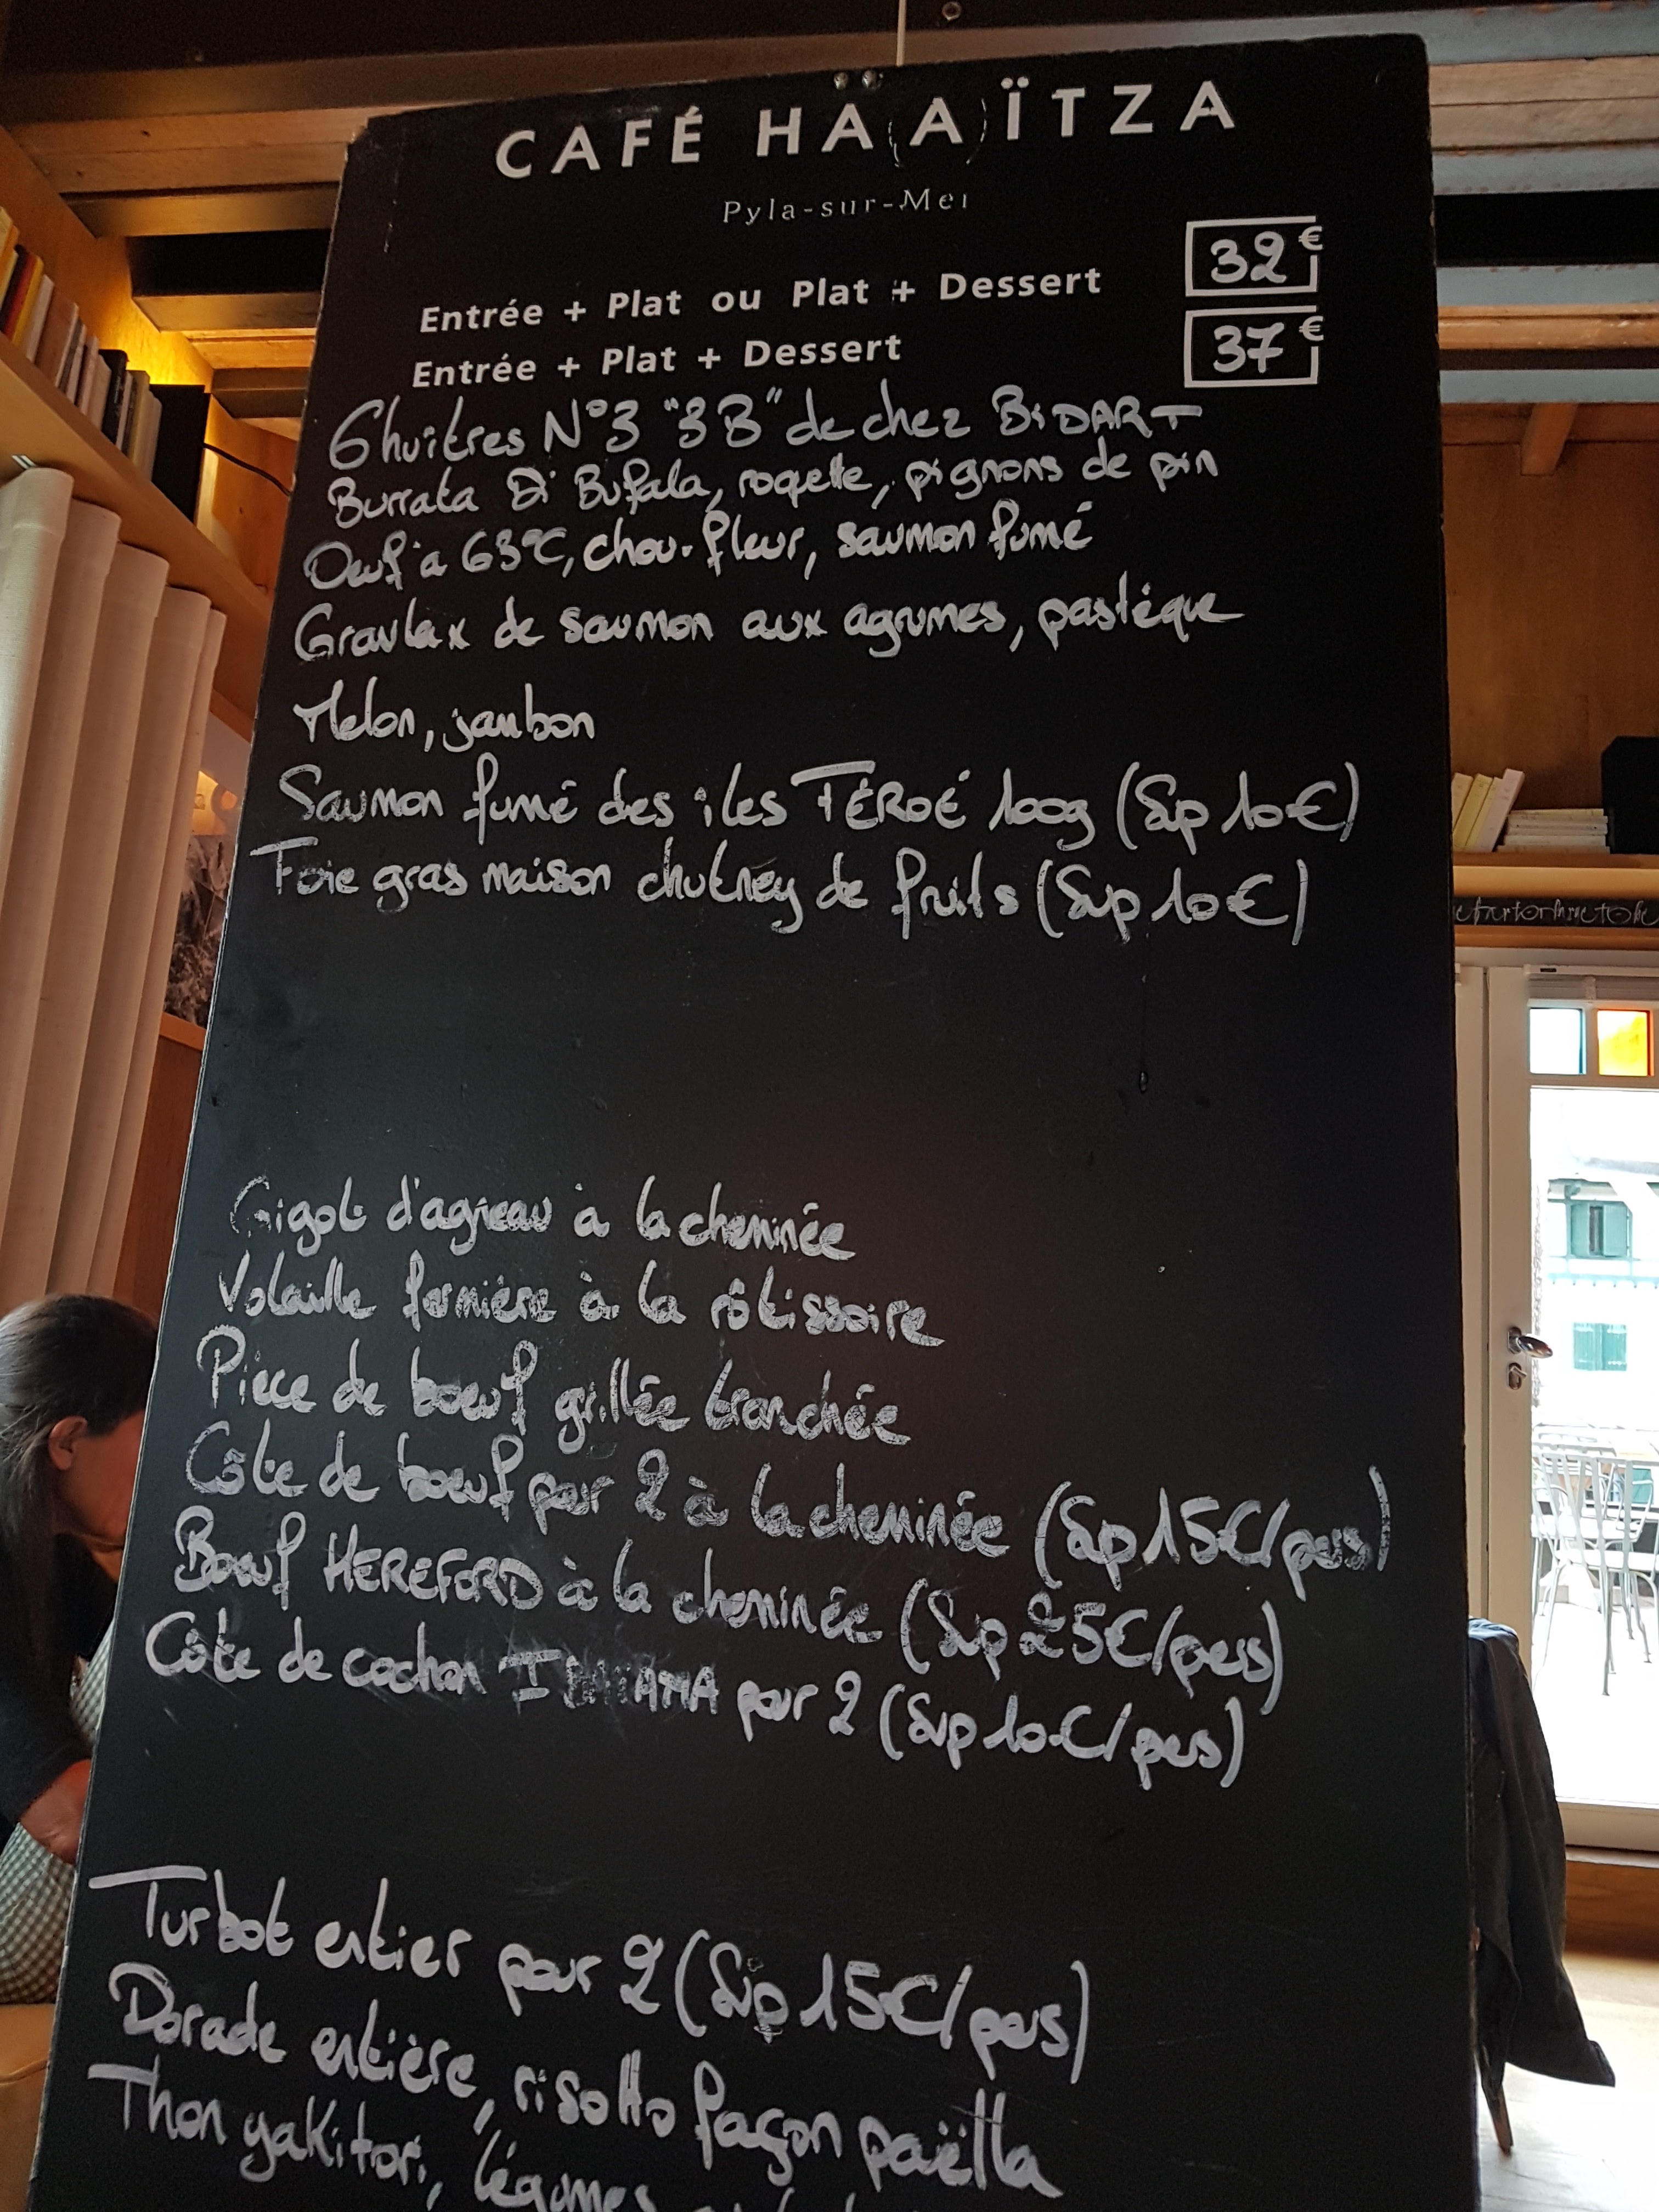 CAFÉ HA(A)ÏTZA
Pyla-sur-Mer
Entrée + Plat ou Plat + Dessert 32€
Entrée + Plat + Dessert 37€
6 huîtres N°3 "3B" de chez BIDART
Burrata Di Bufala, roquette, pignons de pin
Oeuf à 63°C, chou-fleur, saumon fumé
Gravlax de saumon aux agrumes, pastèque
Melon, jambon
Saumon fumé des îles FÉROÉ 100g (Sup 10€)
Foie gras maison chutney de fruits (Sup 10€)
Gigot d'agneau à la cheminée
Volaille fermière à la rôtissoire
Pièce de boeuf grillée tranchée
Côte de boeuf pour 2 à la cheminée (Sup 15€/pers)
Boeuf HEREFORD à la cheminée (Sup 25€/pers)
Côte de cochon pour 2 (Sup 10€/pers)
Turbot entier pour 2 (Sup 15€/pers)
Dorade entière, risotto façon paëlla
Thon yakitori, légumes